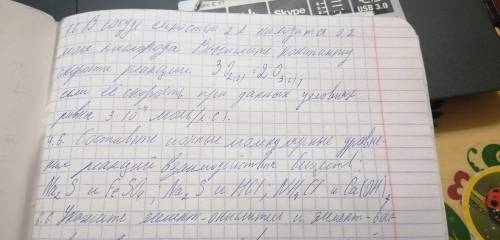 Skype
USB 3.0
1.6. В сосуде емкостью 2 л находится 0,2
моль кислорода. Вычислите константу
скорости реакции 3O2(г) = 2O3(г),
если её скорость при данных условиях
равна 3·10 моль/(л·с).
4.6. Составьте ионные молекулярные уравне-
ния реакций взаимодействия веществ:
Na2S и FeSO4; Na2S и HCl, NH4Cl и Ca(OH)2
6.6. Укажите элемент-окислитель и элемент-вос-